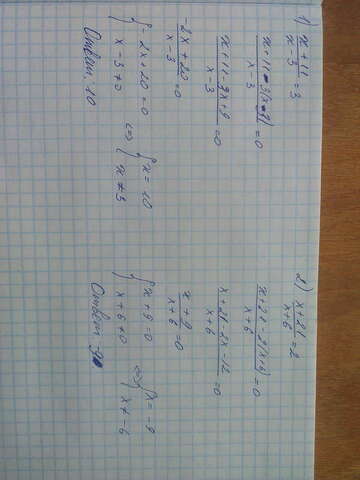 1) x + 11 / x - 3 = 3
x + 11 - 3(x - 3) / x - 3 = 0
x + 11 - 3x + 9 / x - 3 = 0
-2x + 20 / x - 3 = 0
{ -2x + 20 = 0 ⇔ { x = 10
{ x - 3 ≠ 0 { x ≠ 3
Ответ: 10
2) x + 21 / x + 6 = 2
x + 21 - 2(x + 6) / x + 6 = 0
x + 21 - 2x - 12 / x + 6 = 0
x + 9 / x + 6 = 0
{ x + 9 = 0 ⇔ { x = -9
{ x + 6 ≠ 0 { x ≠ -6
Ответ